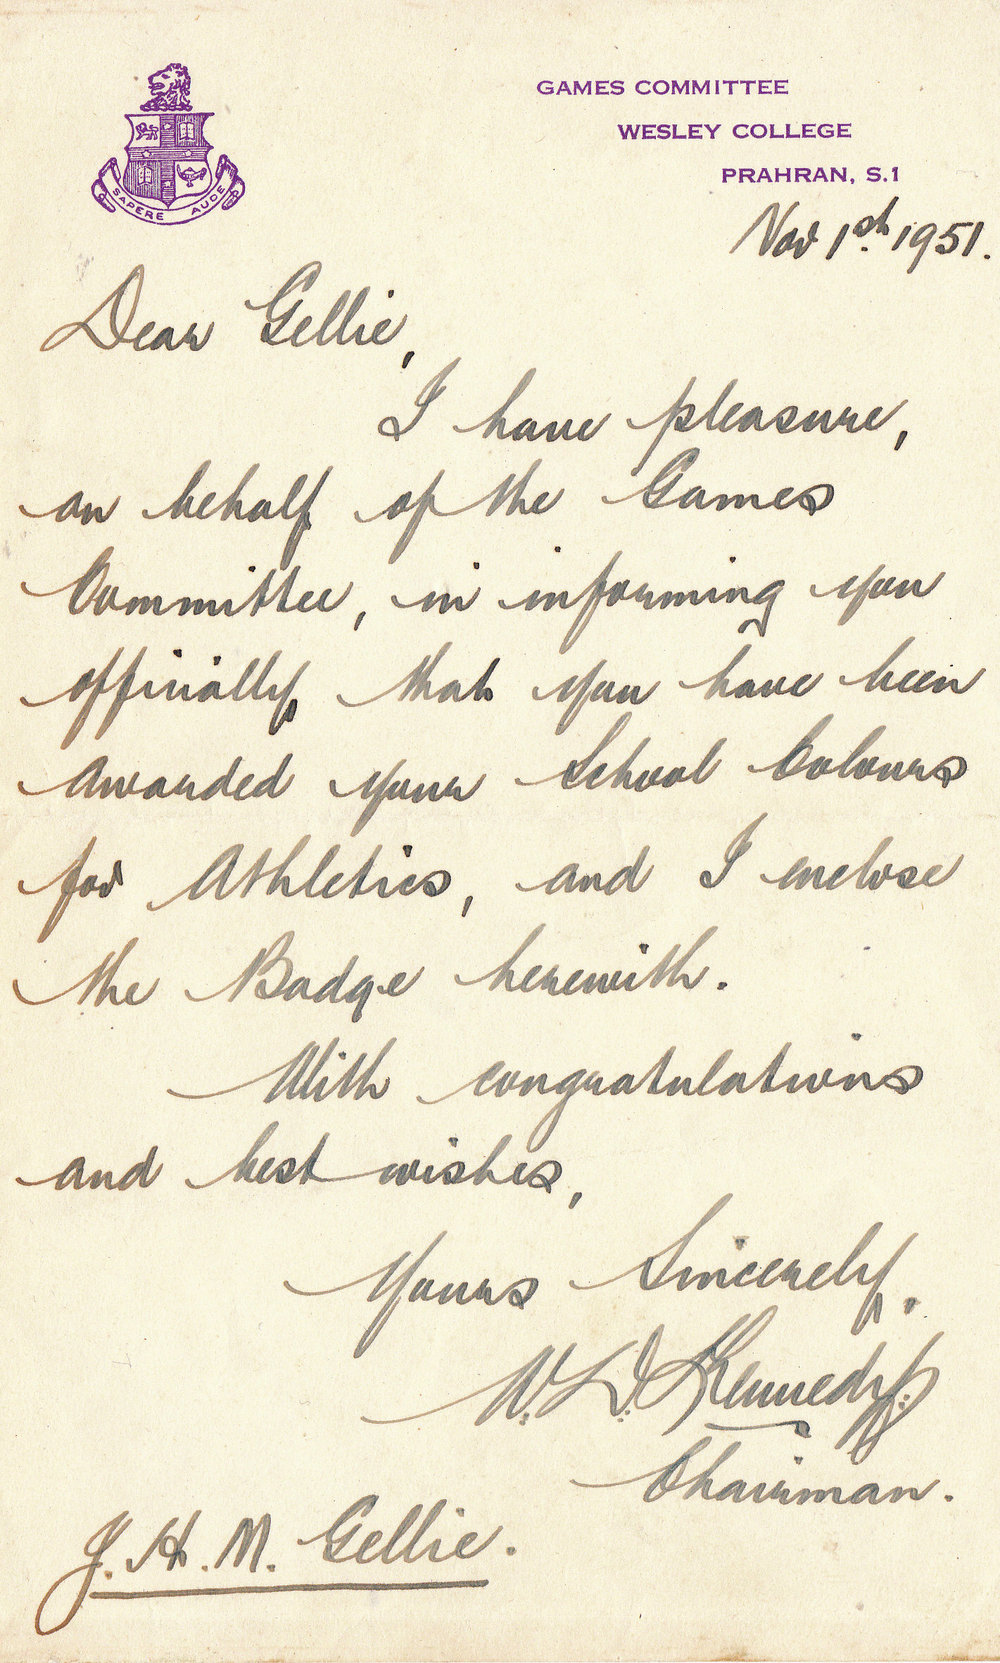 GAMES COMMITTEE
WESLEY COLLEGE
PRAHRAN, S.1
SAPERE AUDE
Nov 1st. 1951.
Dear Gellie,
I have pleasure,
on behalf of the Games
Committee, in informing you
officially, that you have been
awarded your School Colours
for Athletics, and I enclose
the Badge herewith.
With congratulations
and best wishes,
Yours Sincerely,
Kennedy
Chairman.
J. H. M. Gellie.